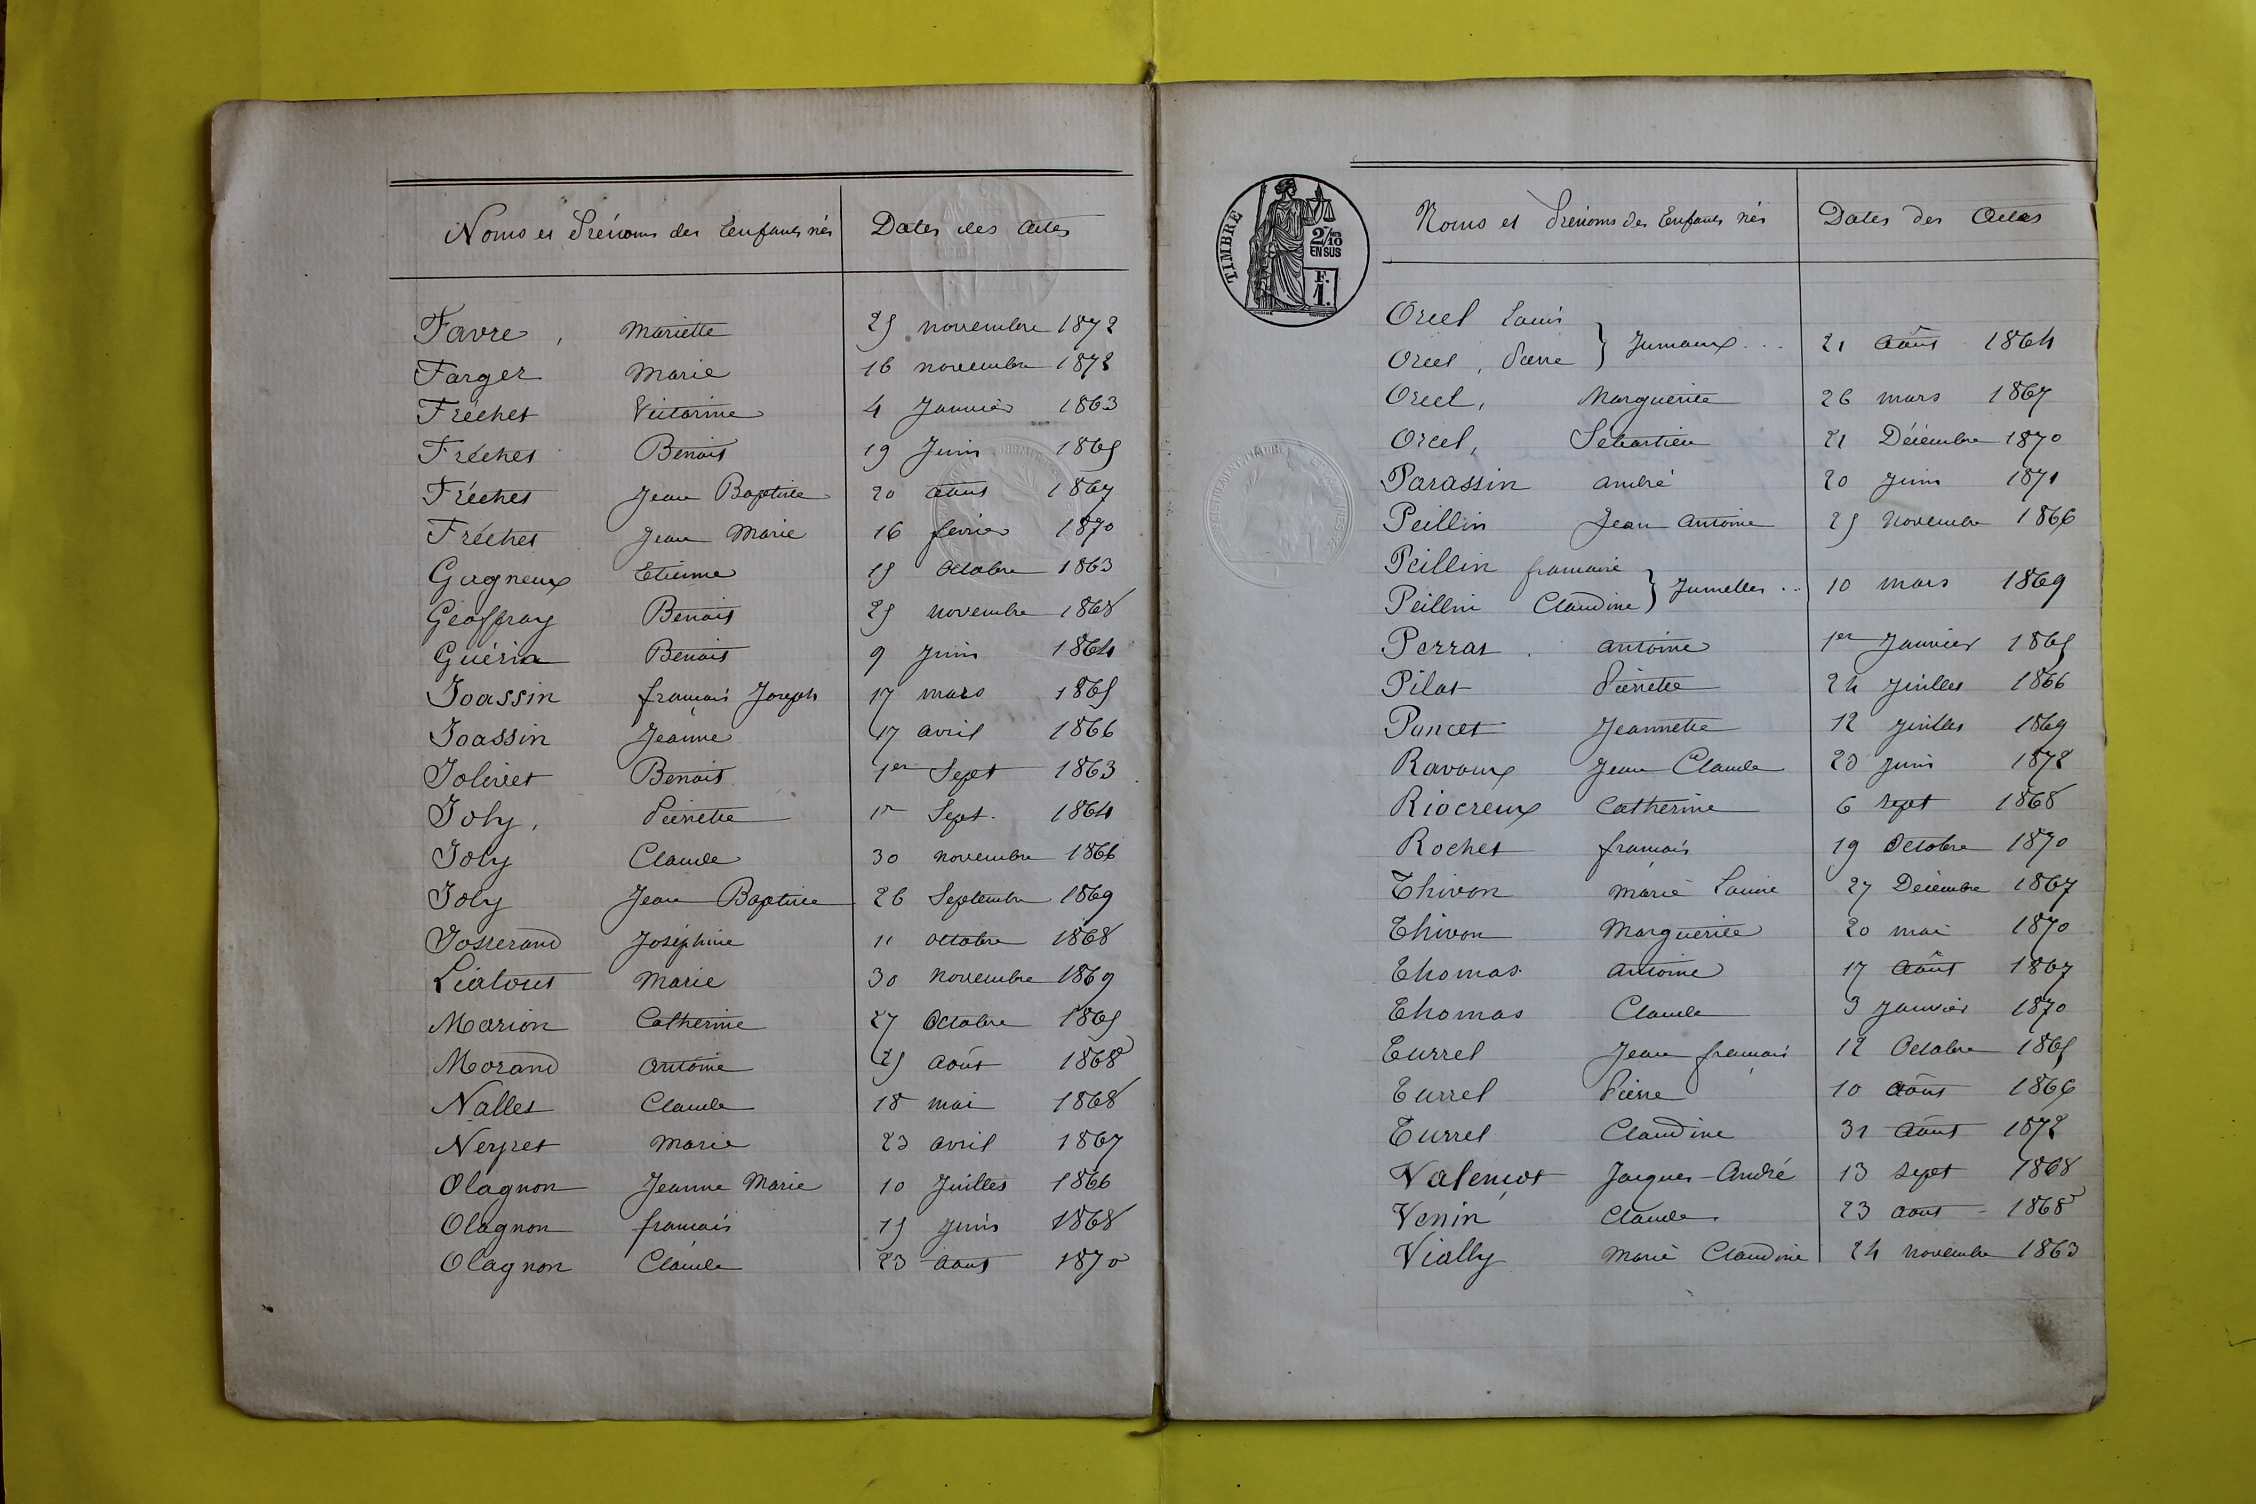 Noms et Prénoms des Enfants nés Dates des Actes
Favre, Mariette 25 novembre 1872
Farger Marie 16 novembre 1872
Fréchet Victorine 4 Janvier 1863
Fréchet Benoit 19 Juin 1865
Fréchet Jean Baptiste 20 Août 1867
Fréchet Jean Marie 16 fevrier 1870
Gagneux Etienne 15 Octobre 1863
Geoffray Benoit 25 novembre 1868
Guérin Benoit 9 Juin 1864
Joassin françois Joseph 17 mars 1865
Joassin Jeanne 17 avril 1866
Jolivet Benoit 1er Sept 1863
Joly, Pierrette 1er Sept. 1864
Joly Claude 30 novembre 1866
Joly Jean Baptiste 26 Septembre 1869
Josserand Joséphine 11 octobre 1868
Liatout Marie 30 novembre 1869
Marion Catherine 27 Octobre 1865
Morand Antoine 25 août 1868
Nallet Claude 18 mai 1868
Neyret Marie 23 avril 1867
Olagnon Jeanne Marie 10 Juillet 1866
Olagnon françois 15 juin 1868
Olagnon Claude 23 Août 1870
TIMBRE
2/10
EN SUS
F.
1.
Noms et Prénoms des Enfants nés Dates des Actes
Orcel Louis
Orcel, Pierre } Jumeaux... 21 Août 1864
Orcel, Marguerite 26 mars 1867
Orcel, Sébastien 21 Décembre 1870
Parassin André 20 juin 1871
Peillin Jean Antoine 25 Novembre 1866
Peillin françoise
Peillin Claudine } Jumelles .. 10 mars 1869
Perras Antoine 1er Janvier 1865
Pilat Pierrette 24 Juillet 1866
Poncet Jeannette 12 juillet 1869
Ravoux Jean Claude 20 juin 1872
Riocreux Catherine 6 sept 1868
Rochet françois 19 Octobre 1870
Thivon Marie Louise 27 Décembre 1867
Thivon Marguerite 20 mai 1870
Thomas Antoine 17 Août 1867
Thomas Claude 3 Janvier 1870
Turrel Jean françois 12 Octobre 1865
Turrel Pierre 10 Août 1866
Turrel Claudine 31 Août 1872
Valençot Jacques-André 13 sept 1868
Venin Claude 23 août - 1868
Vially Marie Claudine 24 novembre 1863